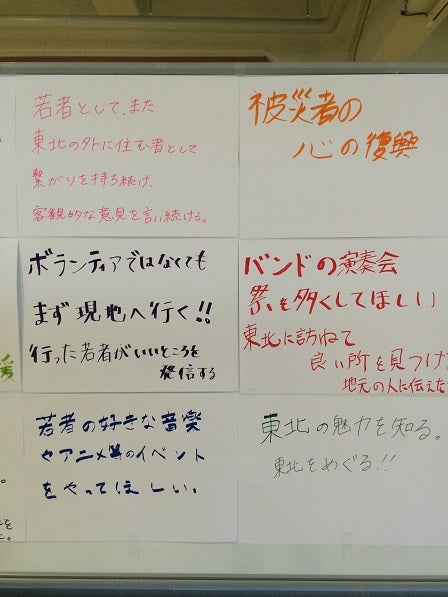 若者として、また
東北の外に住む者として
繋がりを持ち続け、
客観的な意見を言い続ける。
被災者の
心の復興
ボランティアではなくても
まず現地へ行く!!
行った若者がいいところを
発信する
バンドの演奏会
祭を多くしてほしい
東北に訪ねて
良い所を見つけ
地元の人に伝えた
若者の好きな音楽
やアニメ等のイベント
をやってほしい。
東北の魅力を知る。
東北をめぐる!!
援
。
を
た。